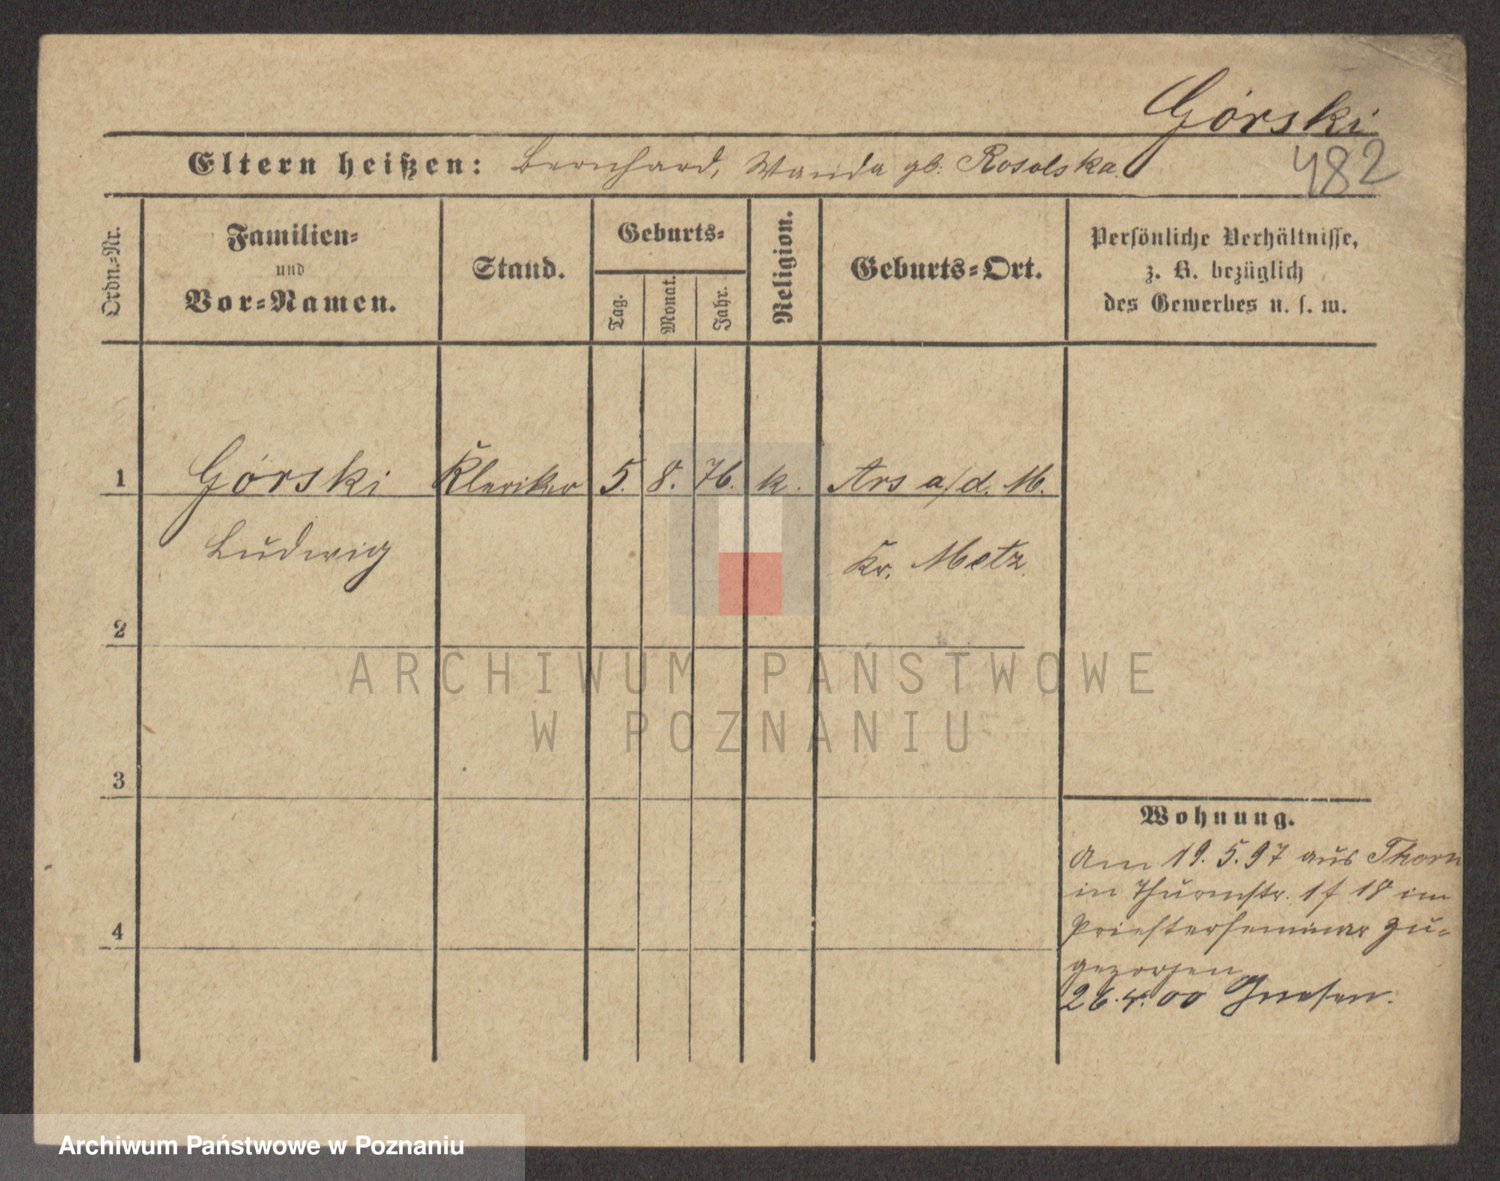 Górski
482
Eltern heißen: Bernhard, Wanda gb. Rosolska.
Ordn.-Nr.
Familien-
und
Vor-Namen.
Stand.
Geburts-
Tag.
Monat.
Jahr.
Religion.
Geburts-Ort.
Persönliche Verhältnisse,
z. B. bezüglich
des Gewerbes u. s. w.
1 Górski Kleriker 5. 8. 76. k. Ars a/d. M.
Ludwig Kr. Metz.
2
ARCHIWUM PAŃSTWOWE
W POZNANIU
3
Wohnung.
Am 19. 5. 97 aus Thorn
in Thurmstr. 17 18 im
Priesterseminar zu-
gezogen
4
26. 4. 00 Gnesen.
Archiwum Państwowe w Poznaniu